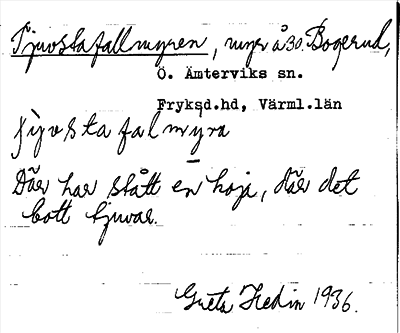 Tjuvstafallmyren, myr å 30. Bogerud,
Ö. Ämterviks sn.
Fryksd.hd, Värml.län
stafalmyra
Där har stått en koja, där det
bott tjuvar.
Greta Hedin 1936.